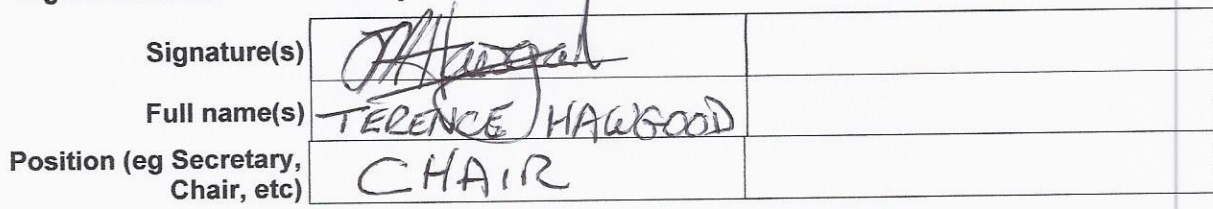 Signature(s)
Full name(s) TERENCE HAWGOOD
Position (eg Secretary, CHAIR
Chair, etc)